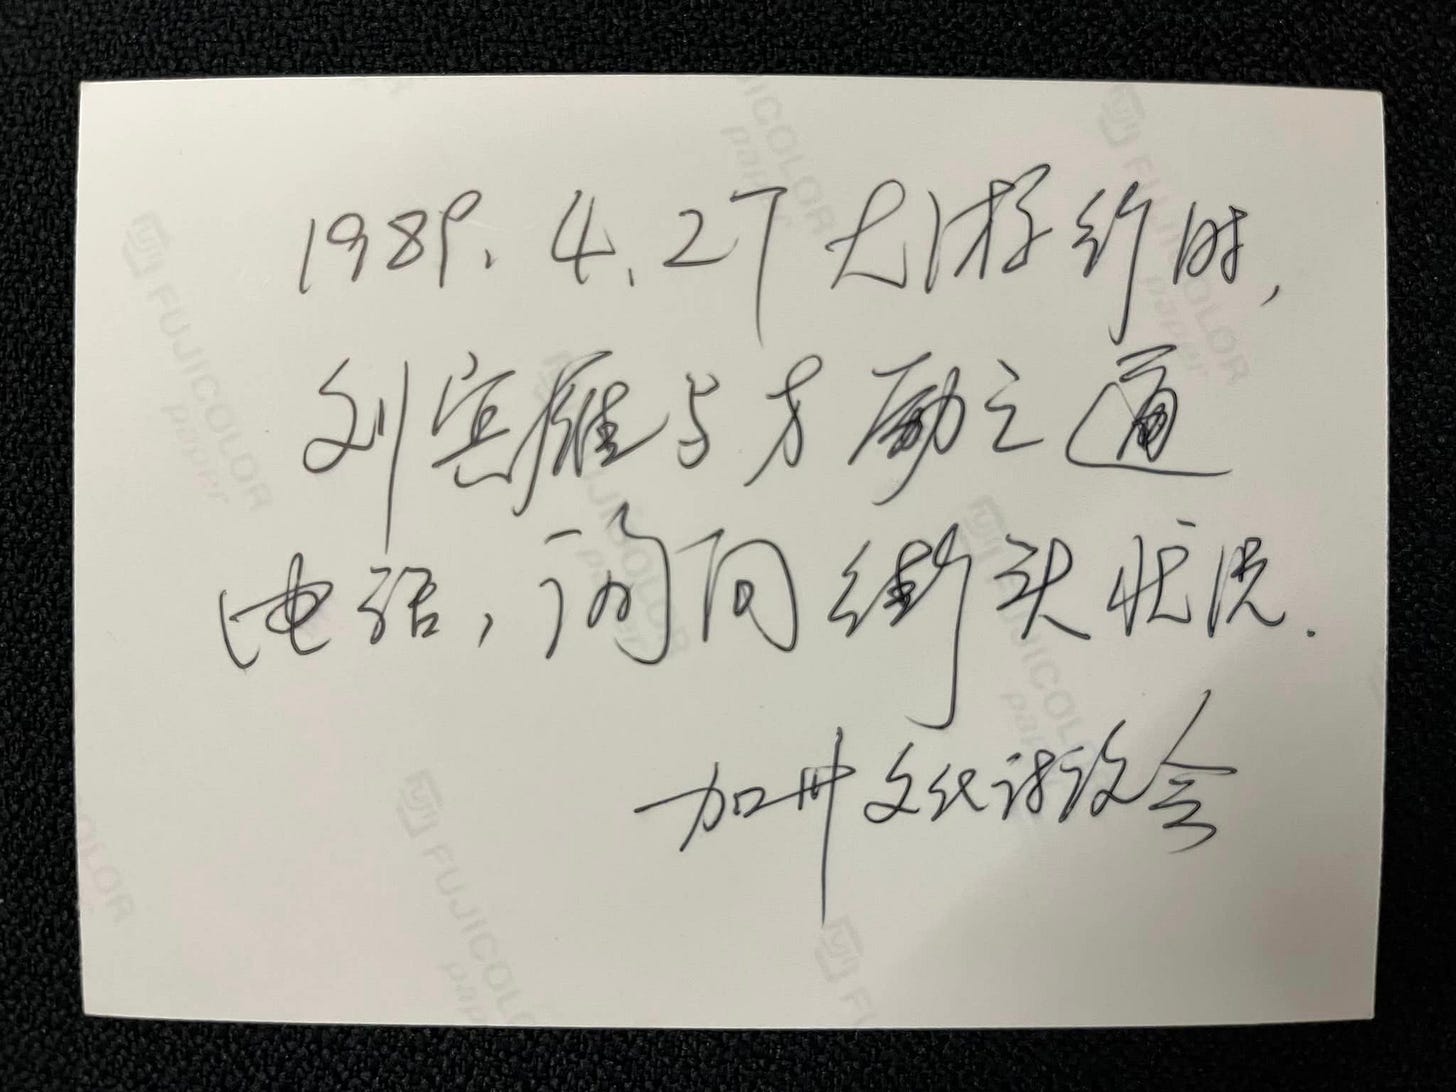 1989.4.27大游行时,
刘宾雁与方励之通
电话,询问街头状况.
加州文化讨论会
FUJICOLOR
paper